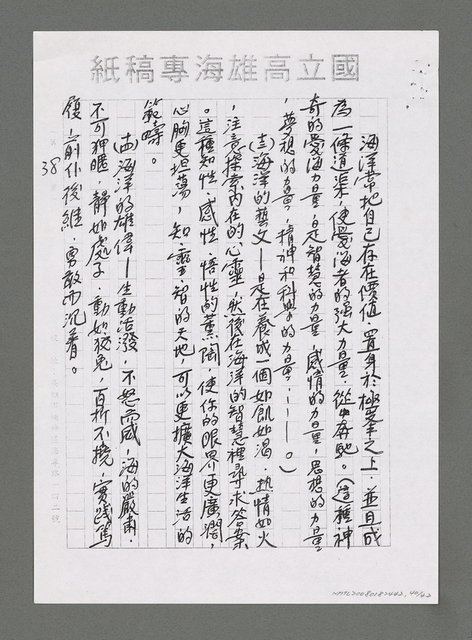 國立高雄海專稿紙
海洋常把自己存在價值，置身於極峯之上，並且成
為一條通渠，使愛海者的強大力量，從中奔馳。（這種神
奇的愛海力量，是智慧的力量，感情的力量，思想的力量
，夢想的力量，精神和科學的力量……。）
海洋的藝文—是在養成一個如飢如渴，熱情如火
，注意探索內在的心靈，然後在海洋的智慧裡尋求答案
。這種知性，感性，悟性的薰陶，使你的眼界更廣濶，
心胸更坦蕩，知、靈、智的天地，可以更擴大海洋生活的
範疇。
海洋的雄偉—生動活潑，不怒而威，海的嚴肅，
不可狎暱，靜如處子，動如狡兔，百折不撓，實踐篤
履，前仆後繼，勇敢而沉着。
38
NMTL20080182442, 40/42